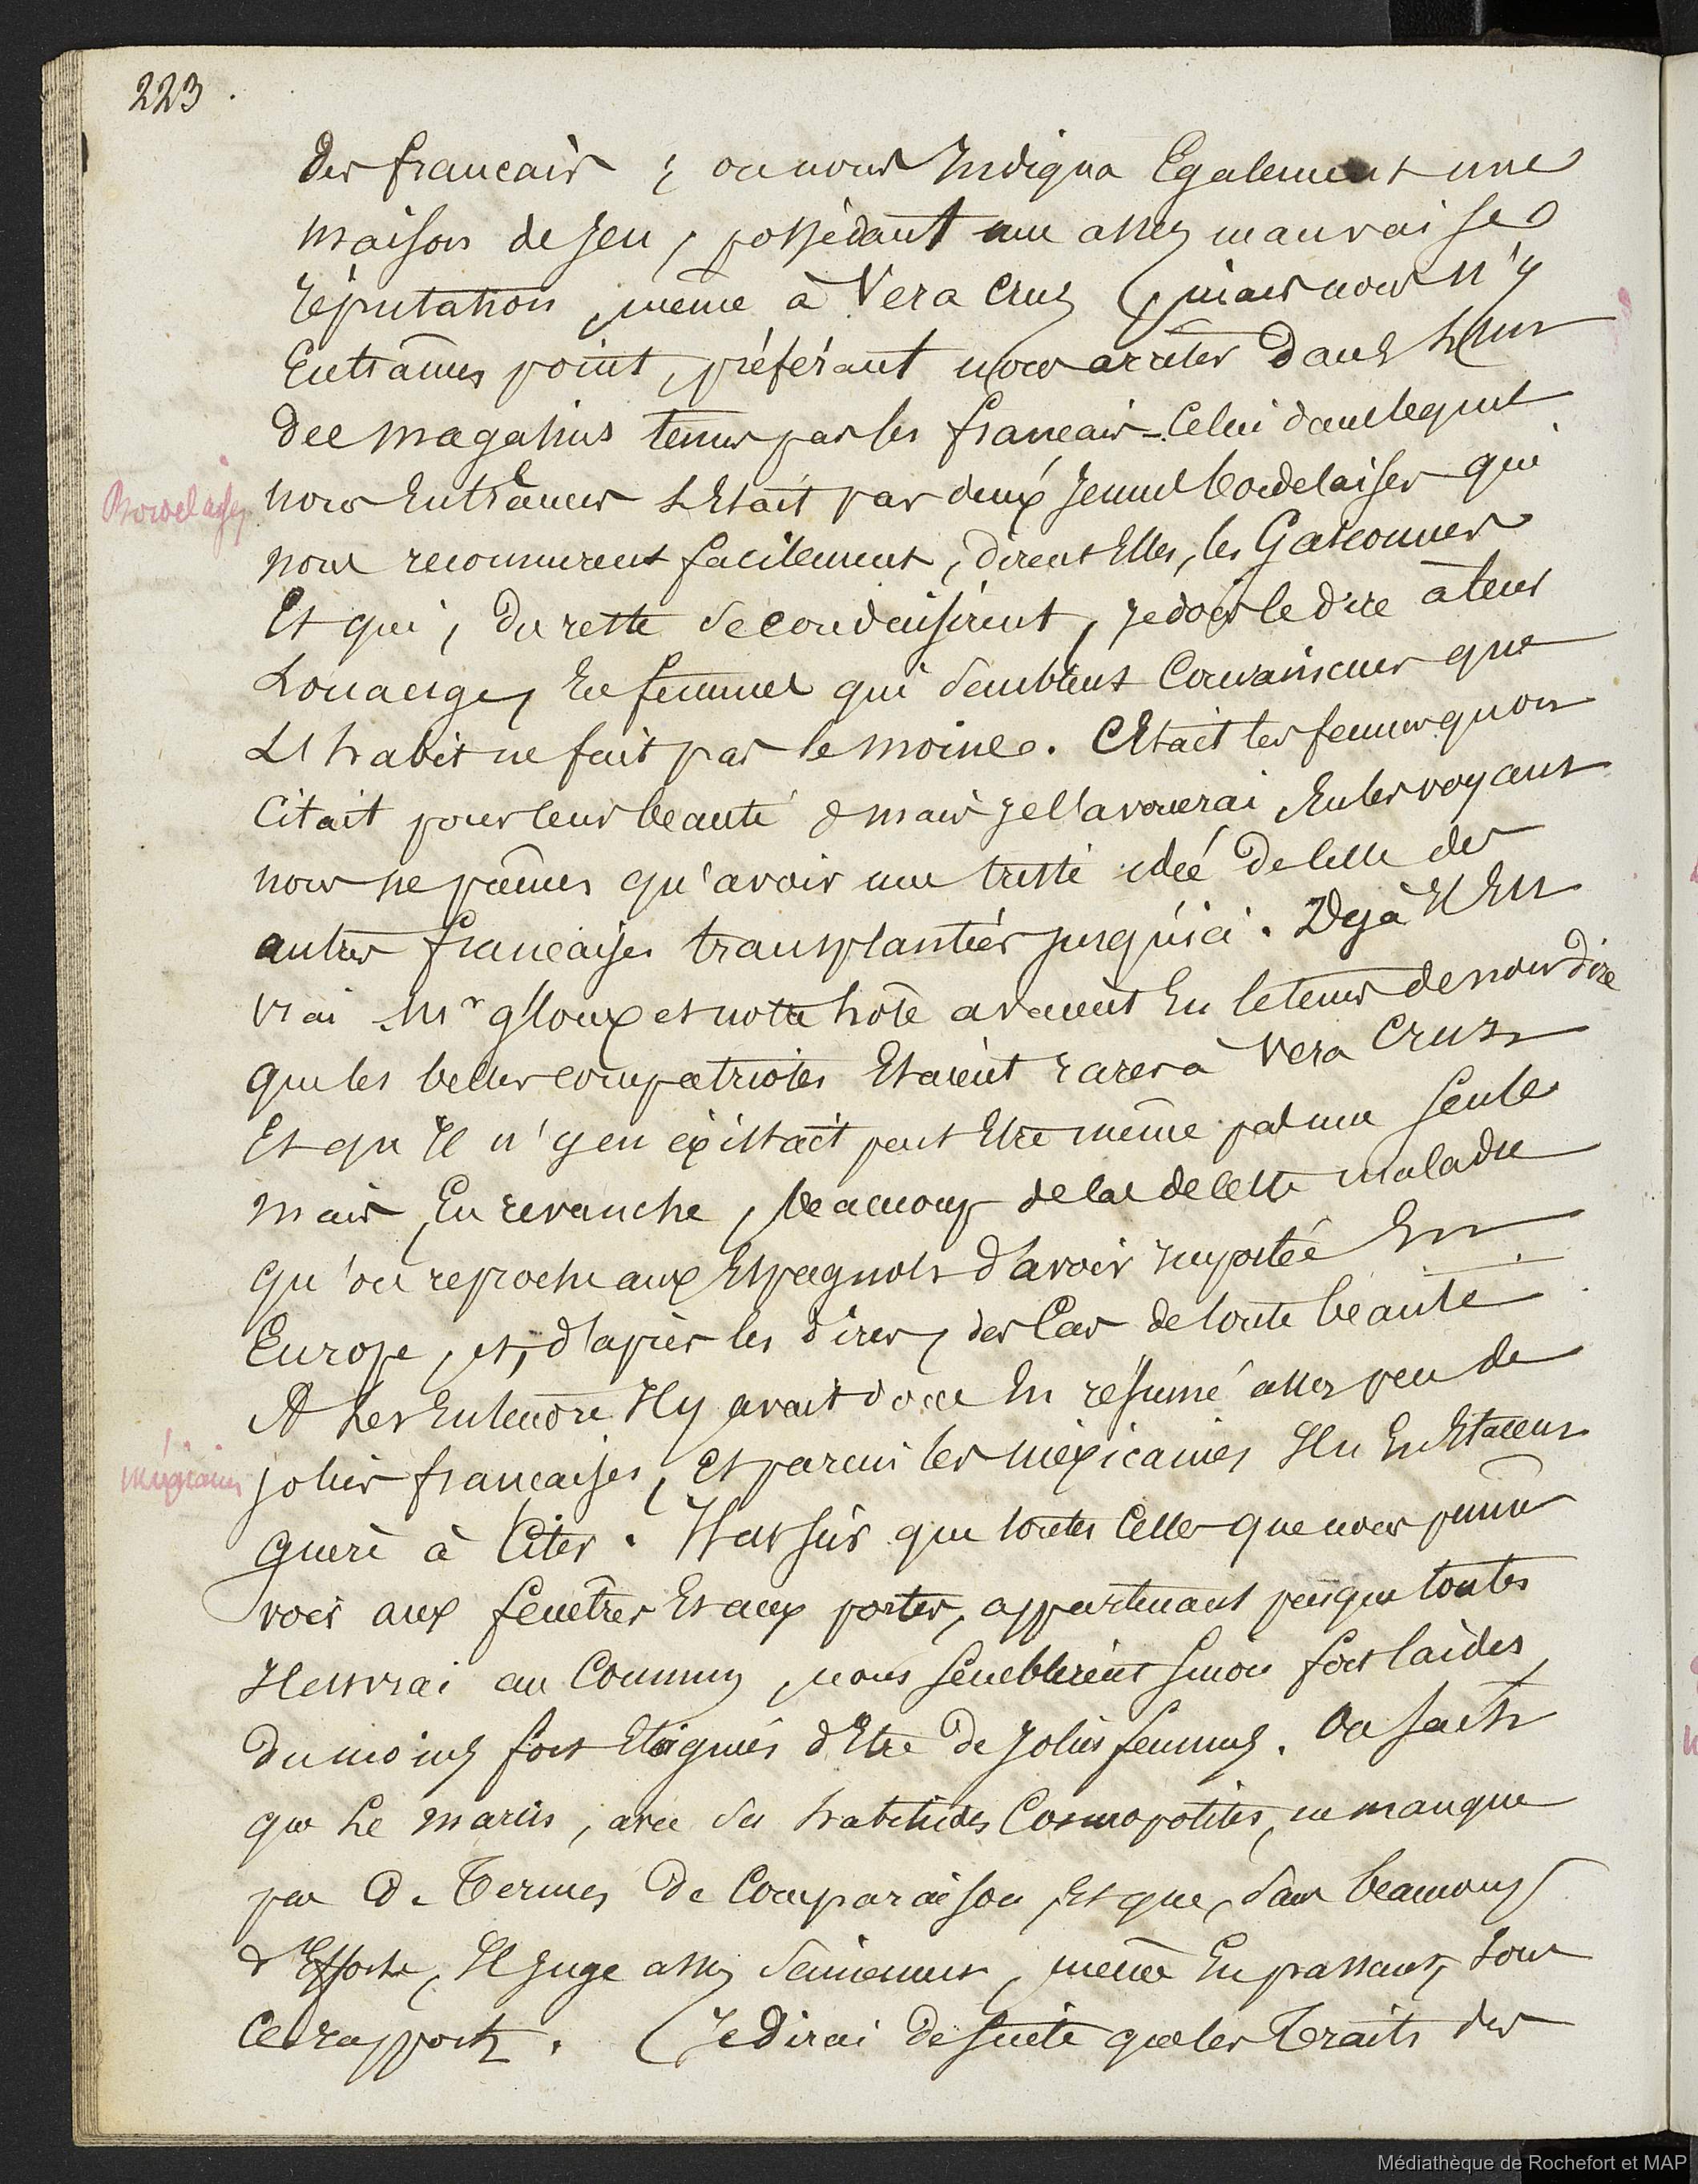 223.
des francais ; on nous Indiqua Egalement une
maison de Jeu, possédant une assez mauvaise
réputation, même à Vera Cruz ; mais nous n'y
Entrâmes point, préférant nous arrêter dans L'un
des magasins tenus par les francais - Celui dans lequel
Bordelaises
nous Entrâmes L'Etait par deux Jeunes bordelaises qui
nous reconnurent facilement, dirent Elles, les Gasconnes
Et qui, du reste se conduisirent, Je dois le dire à leur
Louange, En femmes qui semblent Convaincues que
L'habit ne fait pas le moine. C'Etait les femmes qu'on
Citait pour leur beauté & mais Je l'avouerai En les voyant
nous ne pûmes qu'avoir une triste idée de celle des
autres francaises transplantées jusqu'ici. Déjà Il Est
vrai Mr gloux et notre hôte avaient Eu le temps de nous dire
que les belles compatriotes Etaient rares à Vera Cruz
Et qu'Il n'y en existait peut Etre même pas une seule
mais, En revanche, beaucoup de cas de cette maladie
qu'on reproche aux Espagnols d'avoir Importée En
Europe, et, d'après les dires, des Cas de toute beauté
A Les Entendre Il y avait donc En résumé assez peu de
mexicaines
jolies francaises, Et parmi les mexicaines Il n'En Etait
guère à Citer. Il est sûr que toutes Celles que nous pûmes
voir aux fenêtres Et aux portes, appartenant presque toutes
Il est vrai au Commun, nous semblèrent sinon fort laides,
du moins fort Eloignées d'Etre de Jolies femmes. On sait
que Le marin, avec ses habitudes Cosmopolites, ne manque
pas de Termes de Comparaison, Et que, sans beaucoup
d'Efforts, Il Juge assez sainement, même En passant, sous
Ce rapport. (Je dirai de suite que les Traits des
Médiathèque de Rochefort et MAP